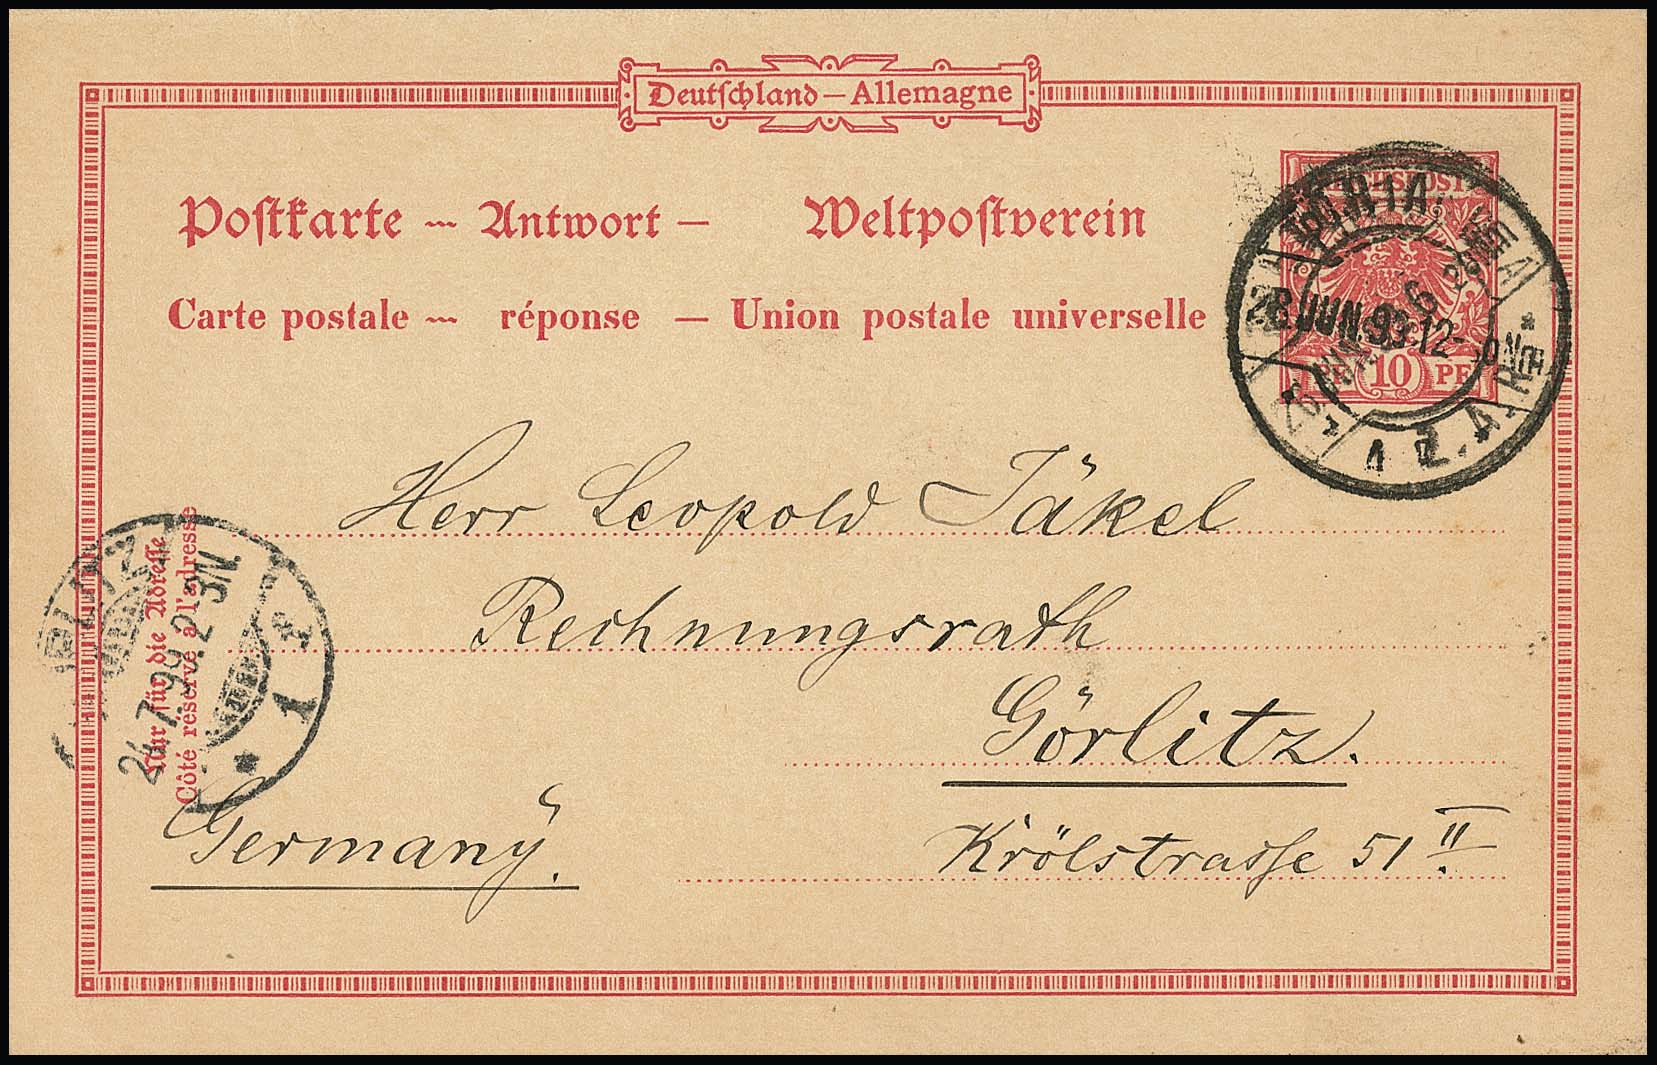 Deutschland – Allemagne
Postkarte ~ Antwort – Weltpostverein
Carte postale ~ réponse — Union postale universelle
REICHSPOST
PF 10 PF
28 JUN. 93. 12-
Z.A.R.
Herr Leopold Jäkel
Rechnungsrath
Görlitz.
Krölstrasse 51 II.
Germany.
Nur für die Adresse
Côté réservé à l'adresse
24.7.99. 2-3N.
* 1 a